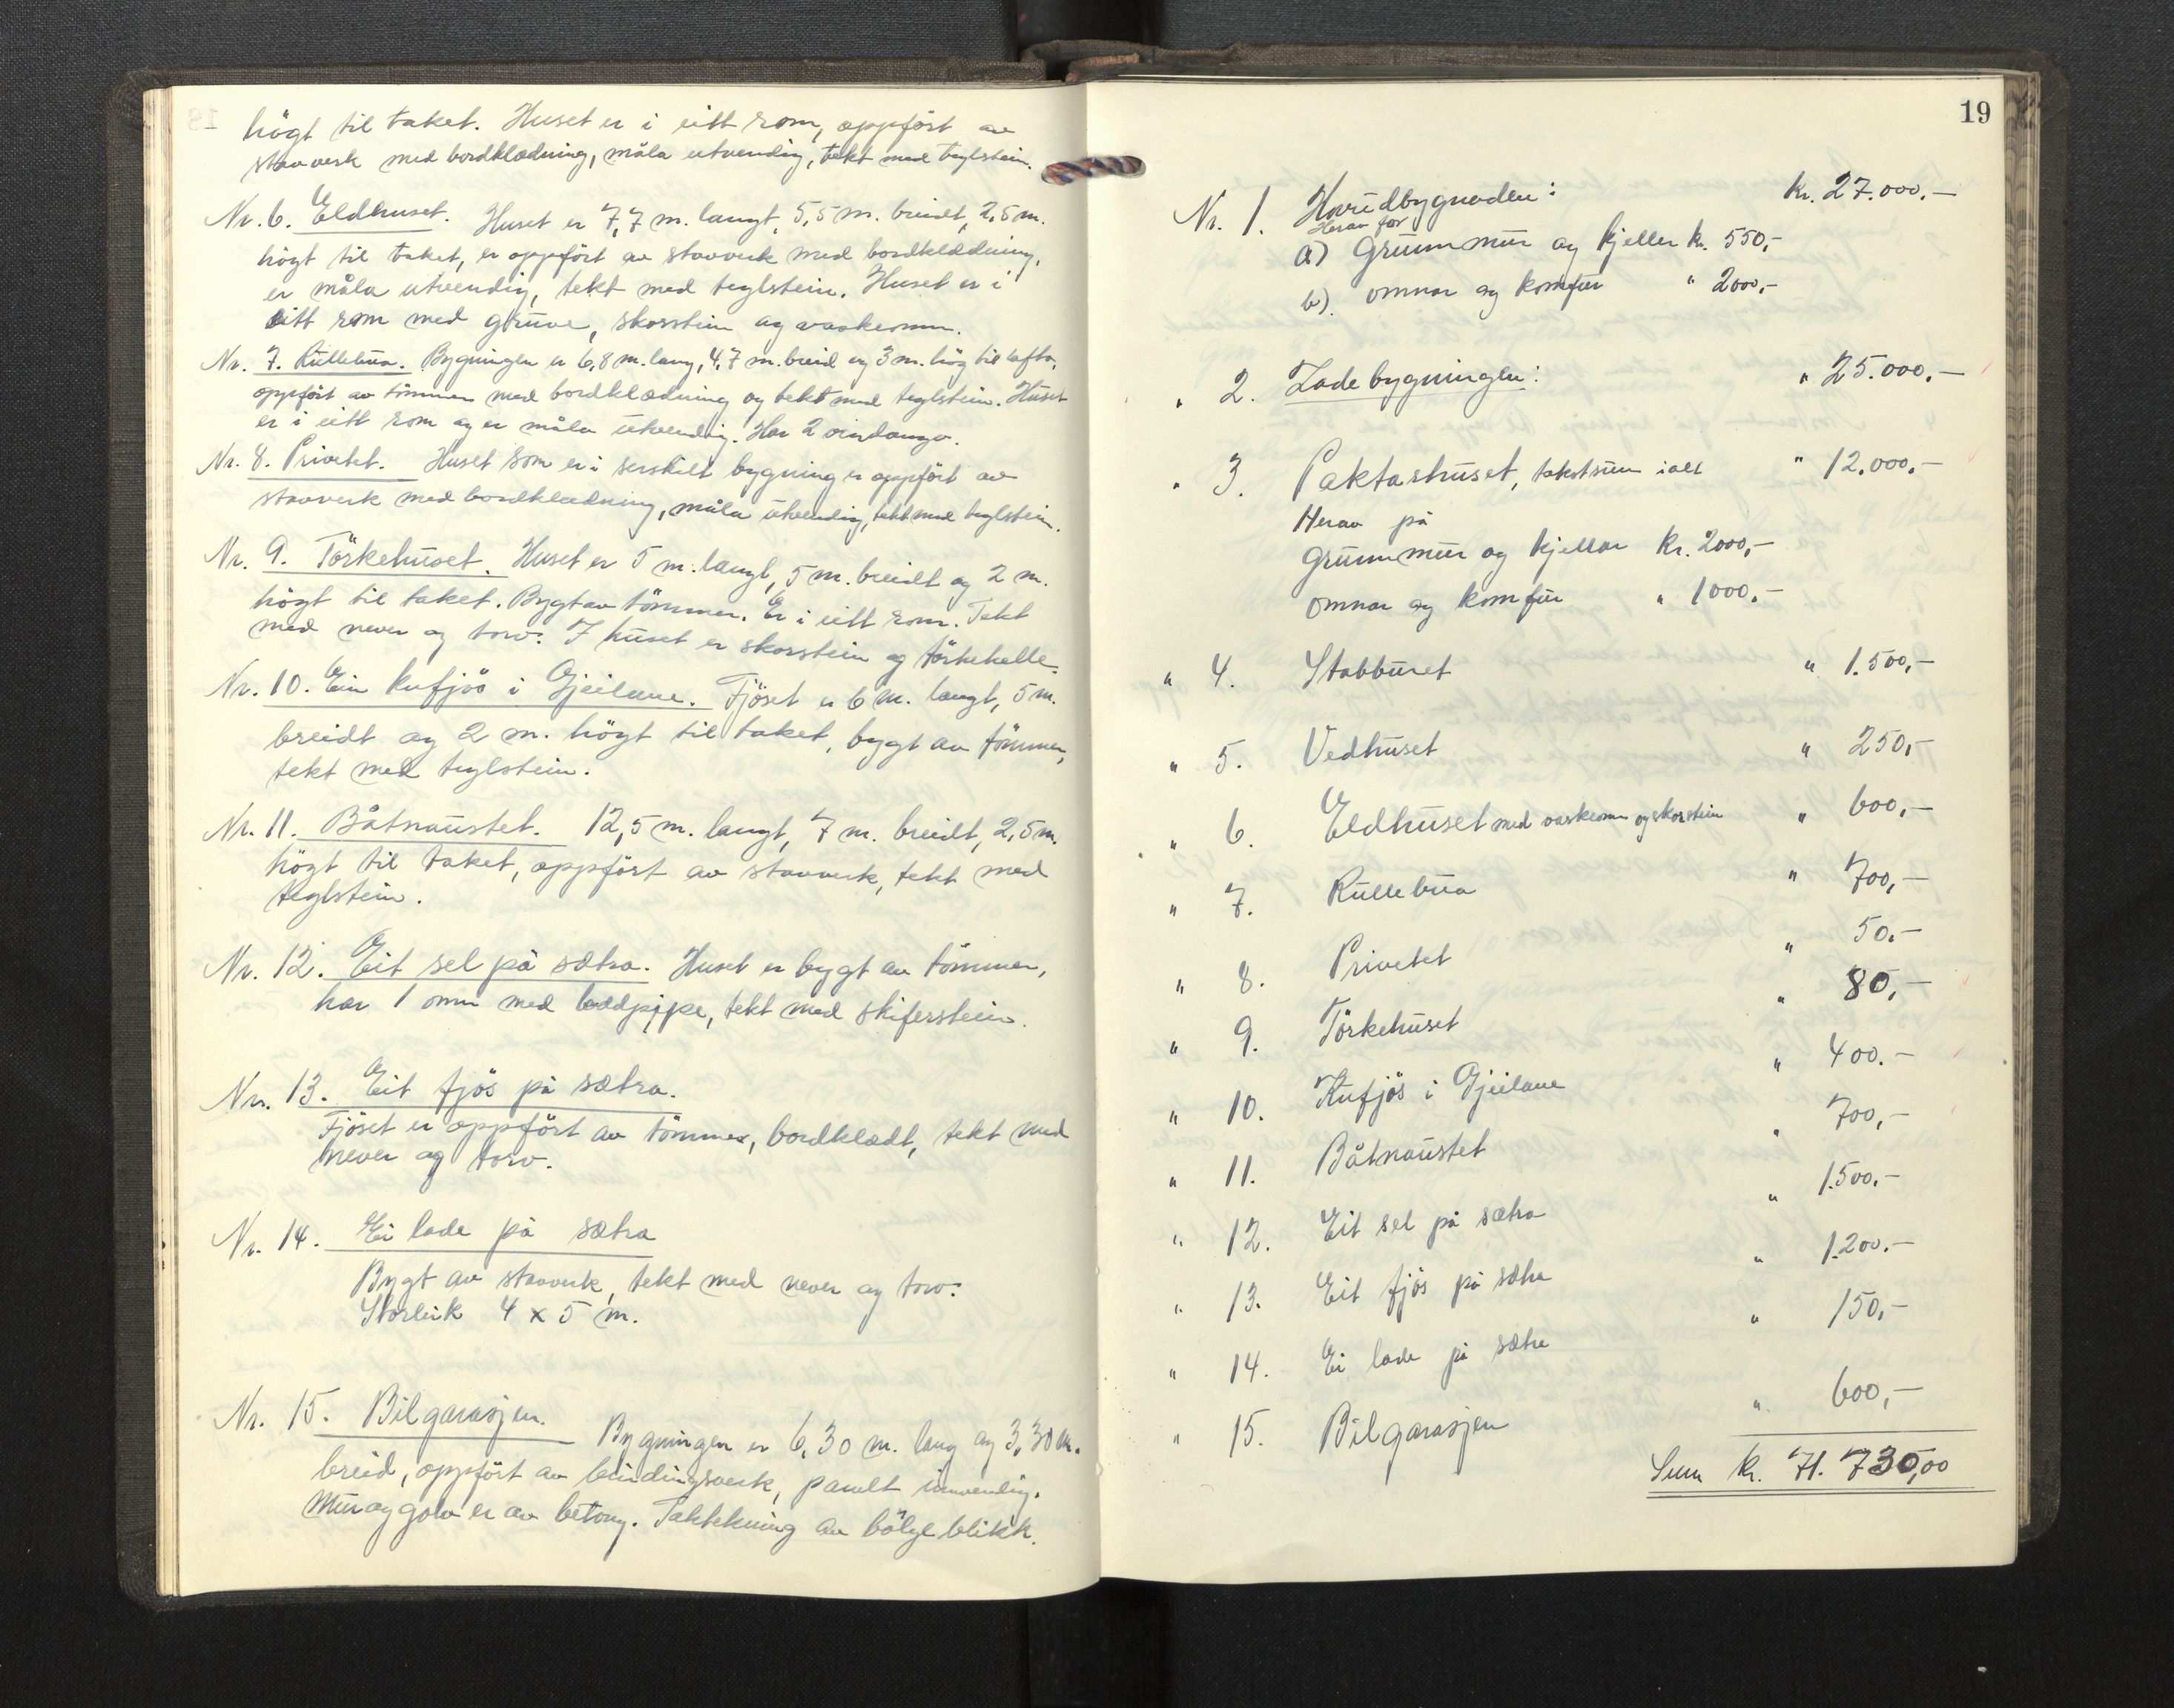 högt til taket. Huset er i eitt rom, oppfört av
stavverk med bordklædning, måla utvendig, tekt med teglstein.
Nr. 6. Eldhuset. Huset er 7,7 m. langt, 5,5 m. breidt, 2,5 m.
högt til taket, er oppfört av stavverk med bordklædning,
er måla utvendig, tekt med teglstein. Huset er i
eitt rom med gruve, skorstein og vaskeomn.
Nr. 7. Rullebua. Bygningen er 6,8 m. lang, 4,7 m. breid og 3 m. hög til lofta,
oppfört av tömmer med bordklædning og tekt med teglstein. Huset
er i eitt rom og er måla utvendig. Har 2 vindaugo.
Nr. 8. Privetet. Huset som er i serskilt bygning er oppfört av
stavverk med bordklædning, måla utvendig, tekt med teglstein.
Nr. 9. Törkehuset. Huset er 5 m. langt, 5 m. breidt og 2 m.
högt til taket. Bygt av tömmer. Er i eitt rom. Tekt
med never og torv. I huset er skorstein og törkehelle.
Nr. 10. Ein kufjös i Gjeilane. Fjöset er 6 m. langt, 5 m.
breidt og 2 m. högt til taket, bygt av tömmer,
tekt med teglstein.
Nr. 11. Båtnaustet. 12,5 m. langt, 7 m. breidt, 2,5 m.
högt til taket, oppfört av stavverk, tekt med
teglstein.
Nr. 12. Eit sel på sætra. Huset er bygt av tömmer,
har 1 omn med pipe, tekt med skiferstein.
Nr. 13. Eit fjös på sætra.
Fjöset er oppfört av tömmer, bordklædt, tekt med
never og torv.
Nr. 14. Ei lade på sætra
Bygt av stavverk, tekt med never og torv.
Storleik 4 x 5 m.
Nr. 15. Bilgarasjen. Bygningen er 6,30 m. lang og 3,30 m.
breid, oppfört av bindingsverk, panelt innvendig.
Mur og golv er av betong. Taktekning av bölgeblikk.
19
Nr. 1. Hovudbygnaden: kr. 27.000,-
Herav for
a) Grunnmur og kjeller kr. 550,-
b) omnar og komfur " 2000,-
" 2. Ladebygningen: " 25.000,-
" 3. Paktarhuset, takstsum ialt " 12.000,-
Herav på
Grunnmur og kjellar kr. 2000,-
omnar og komfur " 1000,-
" 4. Stabburet " 1.500,-
" 5. Vedhuset " 250,-
" 6. Eldhuset med vaskeomn og skorstein " 600,-
" 7. Rullebua " 700,-
" 8. Privetet " 50,-
" 9. Törkehuset " 80,-
" 10. Kufjös i Gjeilane " 400.-
" 11. Båtnaustet " 700,-
" 12. Eit sel på sætra " 1.500,-
" 13. Eit fjös på sætra " 1.200.-
" 14. Ei lade på sætra " 150,-
" 15. Bilgarasjen " 600,-
Sum kr. 71.730,00